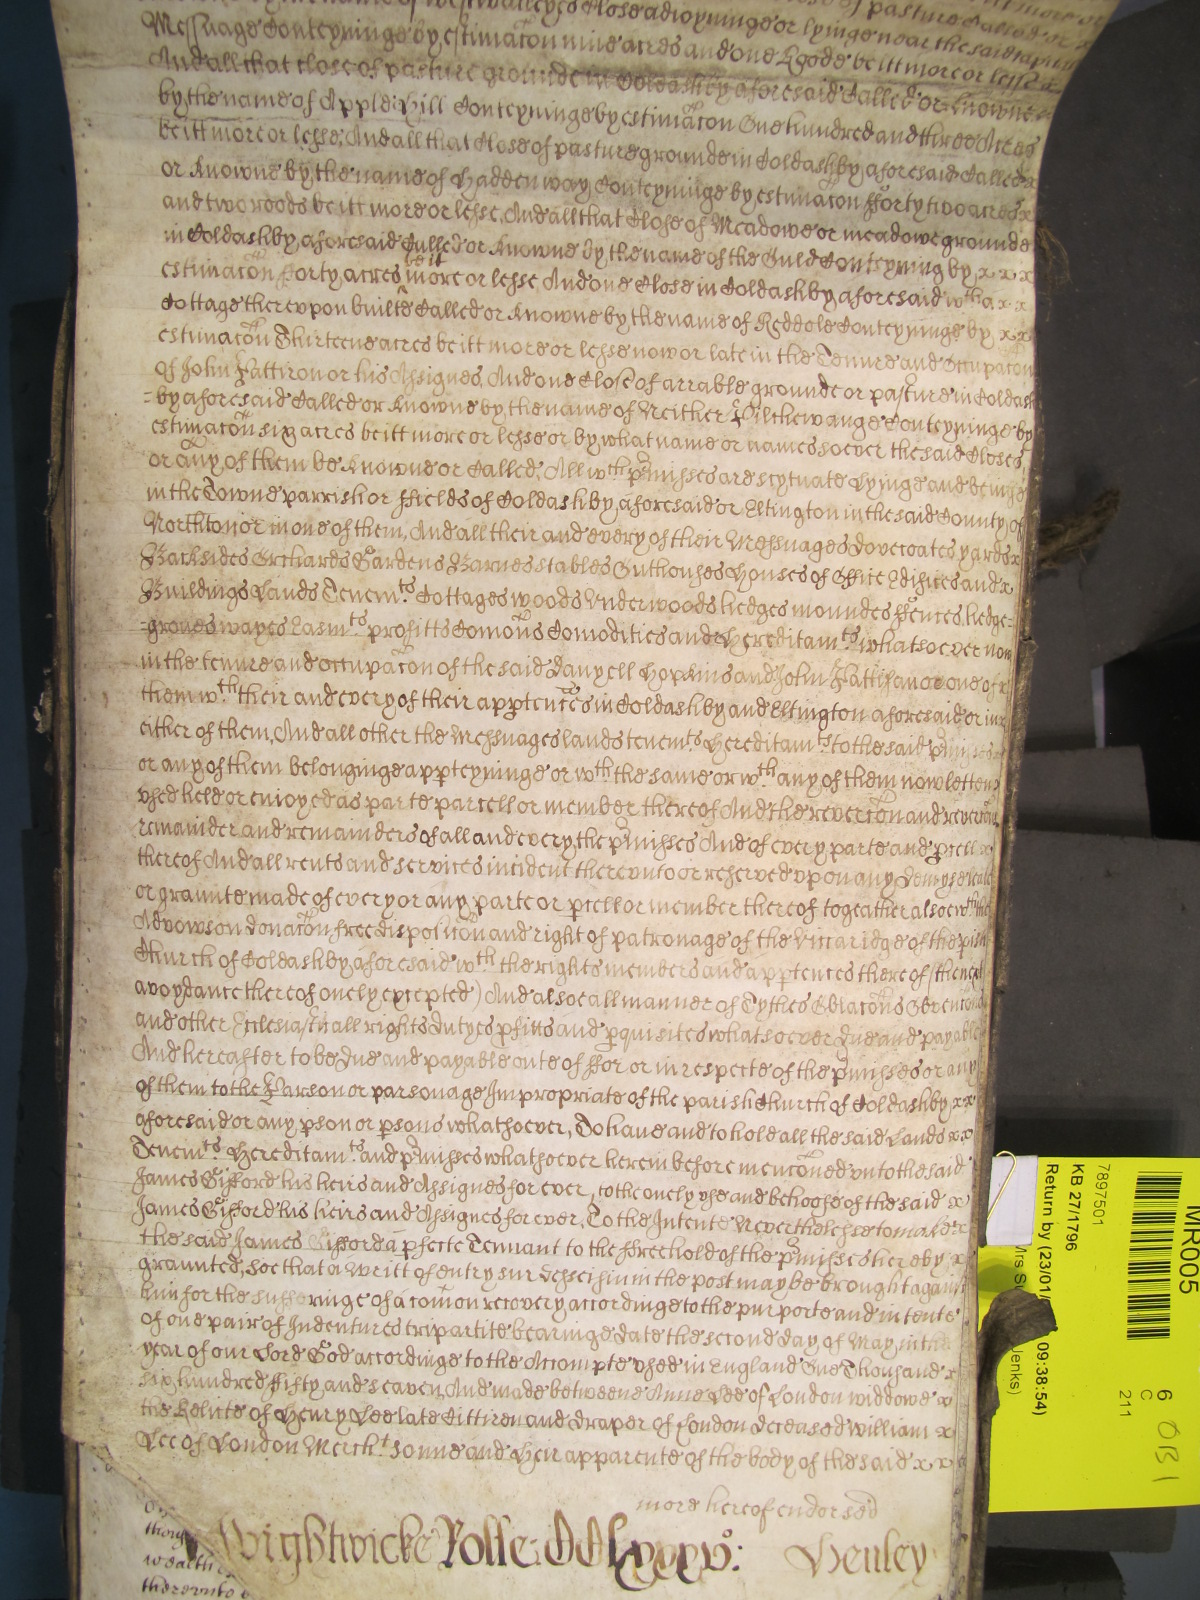 Close adioyninge or lyinge near the said
Messuage Conteyninge by estimacon nine acres and one Roode be itt more or lesse x
And all that close of pasture grounde in Coldashby aforesaid Called or knowne
by the name of Apple Hill Conteyninge by estimacon One hundred and three Acres
be itt more or lesse, And all that Close of pasture grounde in Coldashby aforesaid Called x
or knowne by the name of Hadden way Conteyninge by estimacon fforty two acres x
and two roods be itt more or lesse, And all that Close of Meadowe or meadowe grounde
in Coldashby aforesaid Called or knowne by the name of the Guld Conteyning by x x x
estimacon forty acres be it more or lesse, And one Close in Coldashby aforesaid wth a x x
Cottage therevpon builte Called or knowne by the name of Reddole Conteyninge by x x
estimacon Thirteene acres be itt more or lesse now or late in the Tenure and Occupacon
of John Pattison or his Assignes, And one Close of arrable grounde or pasture in Coldash
=by aforesaid Called or knowne by the name of Neither Conteyninge by
estimacon six acres be itt more or lesse or by what name or names soever the said Closes
or any of them be knowne or Called, All wth pmisses are scytuate lyinge and beinge
in the Towne parrish or ffields of Coldashby aforesaid or Eltington in the said County of
Northton or in one of them, And all their and every of their Messuages dovecoates yards x
Backsides Orchards Gardens Barnes stables Outhouses Houses of Office Edifices and x
Buildings Lands Tenemts Cottages woods vnderwoods hedges moundes ffences hedge=
=groves wayes Easmts profitts Comons Comodities and Hereditamts whatsoever now
in the tenure and occupacon of the said Danyell Hopkins and John Pattison or one of
them wth their and every of their apptences in Coldashby and Eltington aforesaid or in x
either of them, And all other the Messuages lands tenemts Hereditamts to the said pmisses
or any of them belonginge appteyninge or wth the same or wth any of them now letten
vsed held or enioyed as parte parcell or member thereof And the revercon and revercons
remainder and remainders of all and every the pmisses And of every parte and pcell x
thereof And all rents and services incident therevnto or reserved vpon any demyse lease
or graunte made of every or any parte or pcell or member thereof togeather alsoe wth the
Advowson donacon free disposicon and right of patronage of the Viccaridge of the pish
Church of Coldashby aforesaid wth the rights members and apptences thereof (the next
avoydance thereof onely excepted) And alsoe all manner of Tythes Oblacons Obvencons
and other Eclesiasticall rights dutyes pfitts and pquisites whatsoever due and payable
And hereafter to be due and payable oute of ffor or in respecte of the pmisses or any
of them to the Parson or parsonage Impropriate of the parish Church of Coldashby x x
aforesaid or any pson or psons whatsoever, To haue and to hold all the said Lands x x
Tenemts Hereditamts and pmisses whatsoever herein before menconed vnto the said
James Gifford his heirs and Assignes for ever, to the onely vse and behoofe of the said x
James Gifford his heirs and Assignes for ever, To the Intente Neverthelesse to make x
the said James Gifford a pfecte Tennant to the ffreehold of the pmisses hereby x
graunted, soe that a writt of entry sur disseisin in the post may be brought against
him for the sufferinge of a comon recovery accordinge to the purporte and intente
of one pair of Indentures tripartite bearinge date the second day of May in the
year of our Lord God accordinge to the Accompte vsed in England One Thousand x
six hundred ffifty and seaven, And made betweene Anne Lee of London widdowe x
the Relicte of Henry Lee late Cittizen and draper of London deceased William x
Lee of London Mercht sonne and Heir apparente of the body of the said x x
more hereof endorsed
Wightwicke Rolle: Henley
therevnto
MR005
7897501
KB 27/1796
Return by (23/01/
09:38:54)
Jenks)
6
C
211